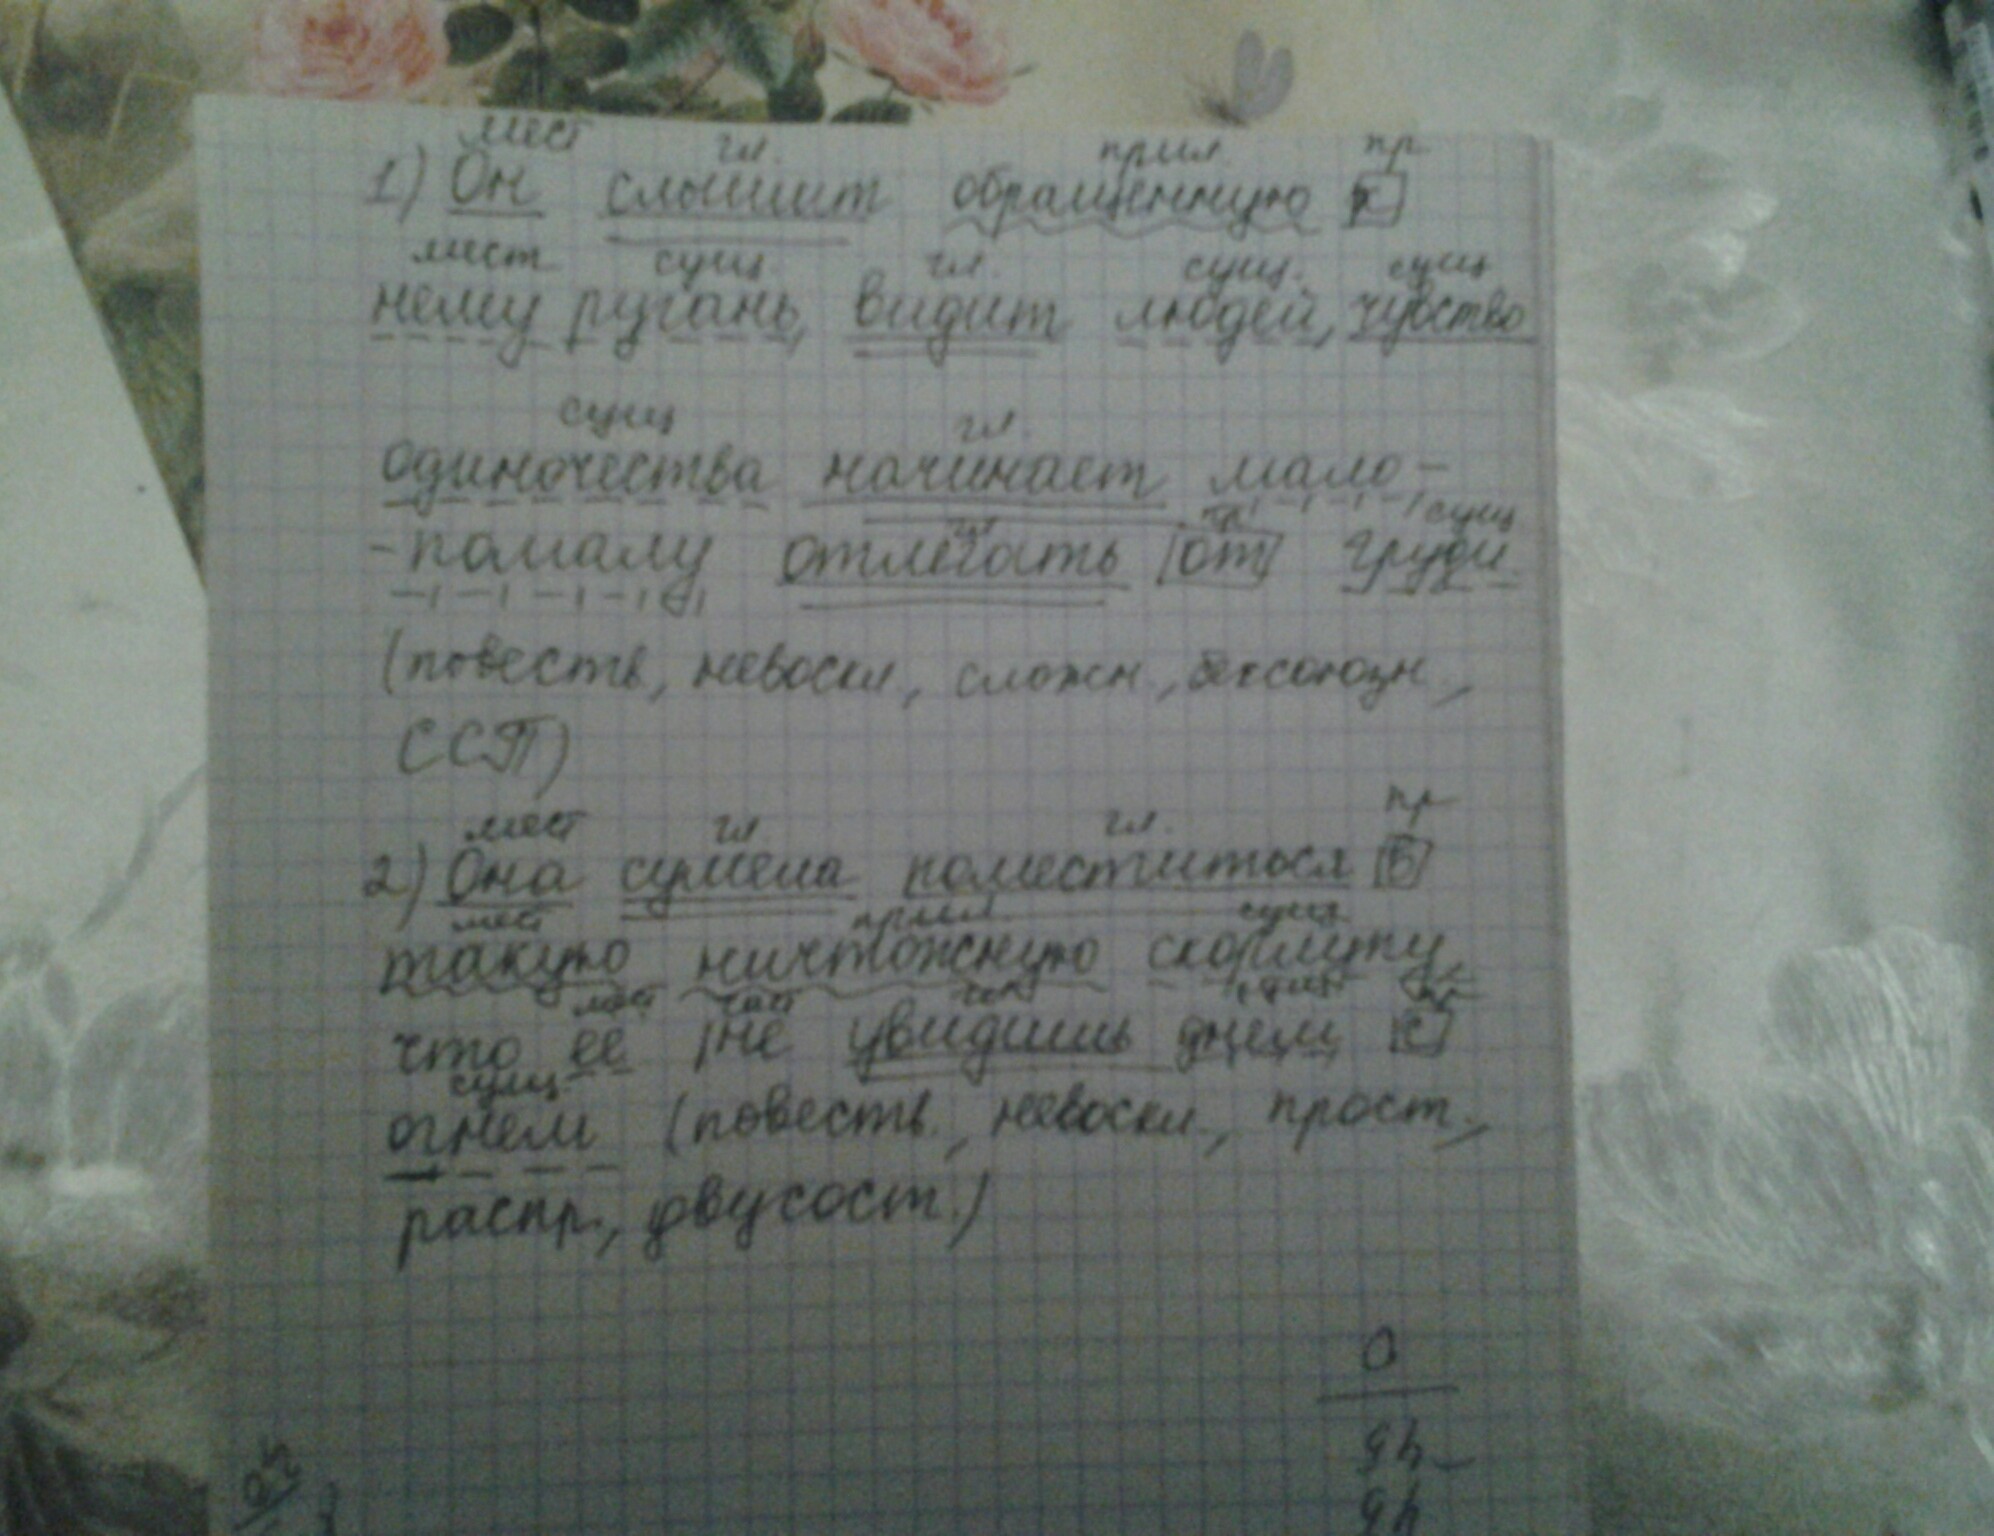 мест гл. прил. пр
1) Он слышит обращенную к
мест сущ. гл. сущ. сущ
нему ругань, видит людей, чувство
сущ гл.
одиночества начинает мало-
пр гл сущ
-помалу отлегать от груди
(повеств, невоскл, сложн, бессоюзн.,
ССП)
мест гл гл. пр
2) Она сумела поместиться в
мест прил. сущ
такую ничтожную скорлупу,
мест част гл пр
что её не увидишь днем с
сущ
огнем (повеств., невоскл., прост.,
распр., двусост.)
0
95